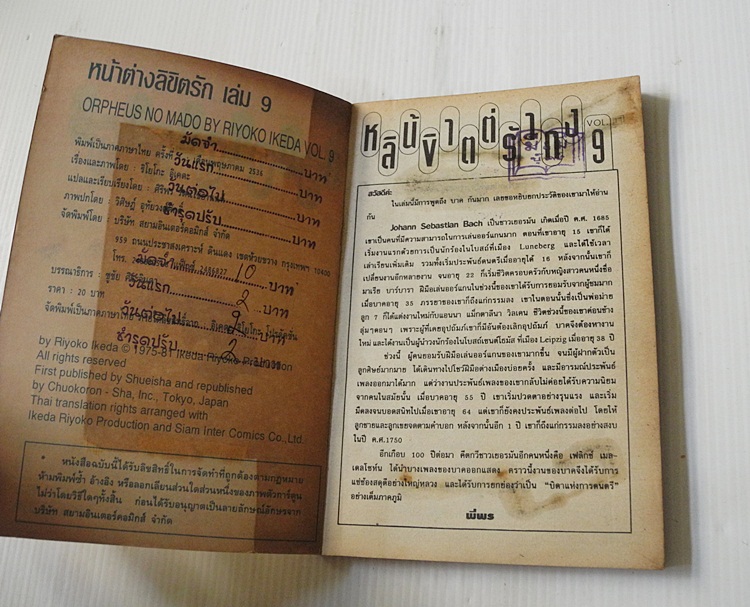 หน้าต่างลิขิตรัก เล่ม 9
ORPHEUS NO MADO BY RIYOKO IKEDA VOL. 9
มัดจำ............บาท
พิมพ์เป็นภาคภาษาไทย ครั้งที่
พฤษภาคม 2536
วันแรก............บาท
เรื่องและภาพโดย : ริโยโกะ อิเคดะ
แปลและเรียบเรียงโดย : ศิริพร
วันต่อไป............บาท
ภาพปกโดย : วิศิษฎ์
ชำรุดปรับ............บาท
จัดพิมพ์โดย : บริษัท สยามอินเตอร์คอมิกส์ จำกัด
959 ถนนประชาสงเคราะห์ ดินแดง เขตห้วยขวาง กรุงเทพฯ 10400
โทร.
มัดจำ 10 บาท
บรรณาธิการ :
วันแรก 2 บาท
ราคา : 20 บาท
วันต่อไป 2 บาท
จัดพิมพ์เป็นภาคภาษาไทย
ชำรุดปรับ 2 บาท
by Riyoko Ikeda © 1975-81 Ikeda Riyoko Production
All rights reserved
First published by Shueisha and republished
by Chuokoron - Sha, Inc., Tokyo, Japan
Thai translation rights arranged with
Ikeda Riyoko Production and Siam Inter Comics Co.,Ltd.
* หนังสือฉบับนี้ได้รับลิขสิทธิ์ในการจัดทำที่ถูกต้องตามกฎหมาย
ห้ามพิมพ์ซ้ำ อ้างอิง หรือลอกเลียนส่วนใดส่วนหนึ่งของภาพตัวการ์ตูน
ไม่ว่าโดยวิธีใดๆทั้งสิ้น ก่อนได้รับอนุญาตเป็นลายลักษณ์อักษรจาก
บริษัท สยามอินเตอร์คอมิกส์ จำกัด
หน้าต่าง VOL.
ลิขิตรัก 9
สวัสดีค่ะ
ในเล่มนี้มีการพูดถึง บาค กันมาก เลยขอหยิบยกประวัติของเขามาให้อ่าน
กัน
Johann Sebastian Bach เป็นชาวเยอรมัน เกิดเมื่อปี ค.ศ. 1685
เขาเป็นคนที่มีความสามารถในการเล่นออร์แกนมาก ตอนที่เขาอายุ 15 เขาก็ได้
เริ่มงานแรกด้วยการเป็นนักร้องในโบสถ์ที่เมือง Luneberg และได้ใช้เวลา
เล่าเรียนเพิ่มเติม รวมทั้งเริ่มประพันธ์ดนตรีเมื่ออายุได้ 16 หลังจากนั้นเขาก็
เปลี่ยนงานอีกหลายงาน จนอายุ 22 ก็เริ่มชีวิตครอบครัวกับหญิงสาวคนหนึ่งชื่อ
มาเรีย บาร์บารา ฝีมือเล่นออร์แกนในช่วงนี้ของเขาได้รับการยอมรับจากผู้ชมมาก
เมื่อบาคอายุ 35 ภรรยาของเขาก็ถึงแก่กรรมลง เขาในตอนนั้นซึ่งเป็นพ่อม่าย
ลูก 7 ก็ได้แต่งงานใหม่กับแอนนา แม็กดาลีนา วิลเคน ชีวิตช่วงนี้ของเขาค่อนข้าง
ลุ่มๆดอนๆ เพราะผู้ที่เคยอุปถัมภ์เขาก็มีอันต้องเลิกอุปถัมภ์ บาคจึงต้องหางาน
ใหม่ และได้งานเป็นผู้นำวงนักร้องในโบสถ์เซนต์โธมัส ที่เมือง Leipzig เมื่ออายุ 38 ปี
ช่วงนี้ ผู้คนยอมรับฝีมือเล่นออร์แกนของเขามากขึ้น จนมีผู้ฝากตัวเป็น
ลูกศิษย์มากมาย ได้เดินทางไปโชว์ฝีมือต่างเมืองบ่อยครั้ง และมีอารมณ์ประพันธ์
เพลงออกมาได้มาก แต่ว่างานประพันธ์เพลงของเขากลับไม่ค่อยได้รับความนิยม
จากคนในสมัยนั้น เมื่อบาคอายุ 55 ปี เขาเริ่มปวดตาอย่างรุนแรง และเริ่ม
มืดลงจนบอดสนิทไปเมื่อเขาอายุ 64 แต่เขาก็ยังคงประพันธ์เพลงต่อไป โดยให้
ลูกชายและลูกเขยจดตามคำบอก หลังจากนั้นอีก 1 ปี เขาก็ถึงแก่กรรมลงอย่างสงบ
ในปี ค.ศ.1750
อีกเกือบ 100 ปีต่อมา คีตกวีชาวเยอรมันอีกคนหนึ่งคือ เฟลิกซ์ เมน-
เดลโซห์น ได้นำบางเพลงของบาคออกแสดง คราวนี้งานของบาคจึงได้รับการ
แซ่ซ้องสดุดีอย่างใหญ่หลวง และได้รับการยกย่องว่าเป็น “บิดาแห่งการดนตรี”
อย่างเต็มภาคภูมิ
พี่พร